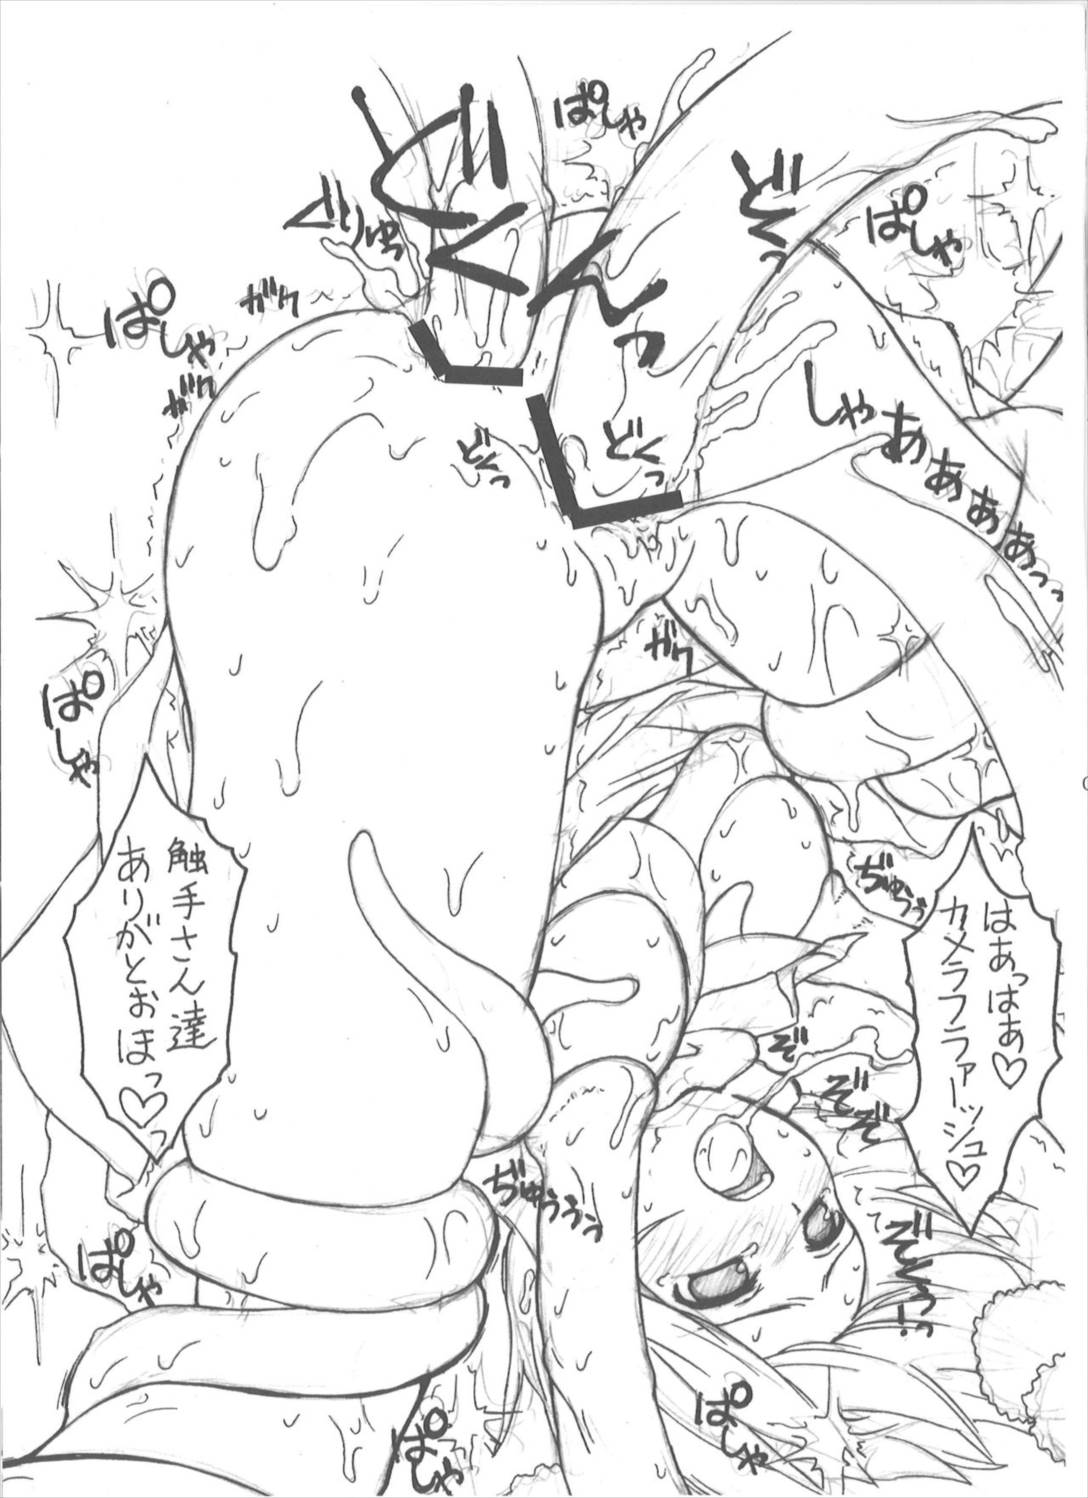 ぱしゃ
どぞんっ
どぞっ
ぱしゃ
ぐりゅっ
ガク
ぱしゃ
ガク
どくっ
どくっ
しゃああああぁっっ
ガク
ぱしゃ
はあっはあ♡
カメラフラァーッシュ♡
ぢゅうぅ
触手さん達
ありがとおほっ♡っ
ぞ
ぞぞ
ぢゅううぅ
ぞぞっっ!
ぱしゃ
ぱしゃ
ぱしゃ